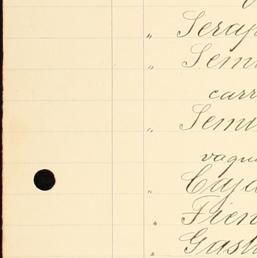 " Serap
" Semi
carr
" Semi
vaqu
" Caja
" Fien
" Gast